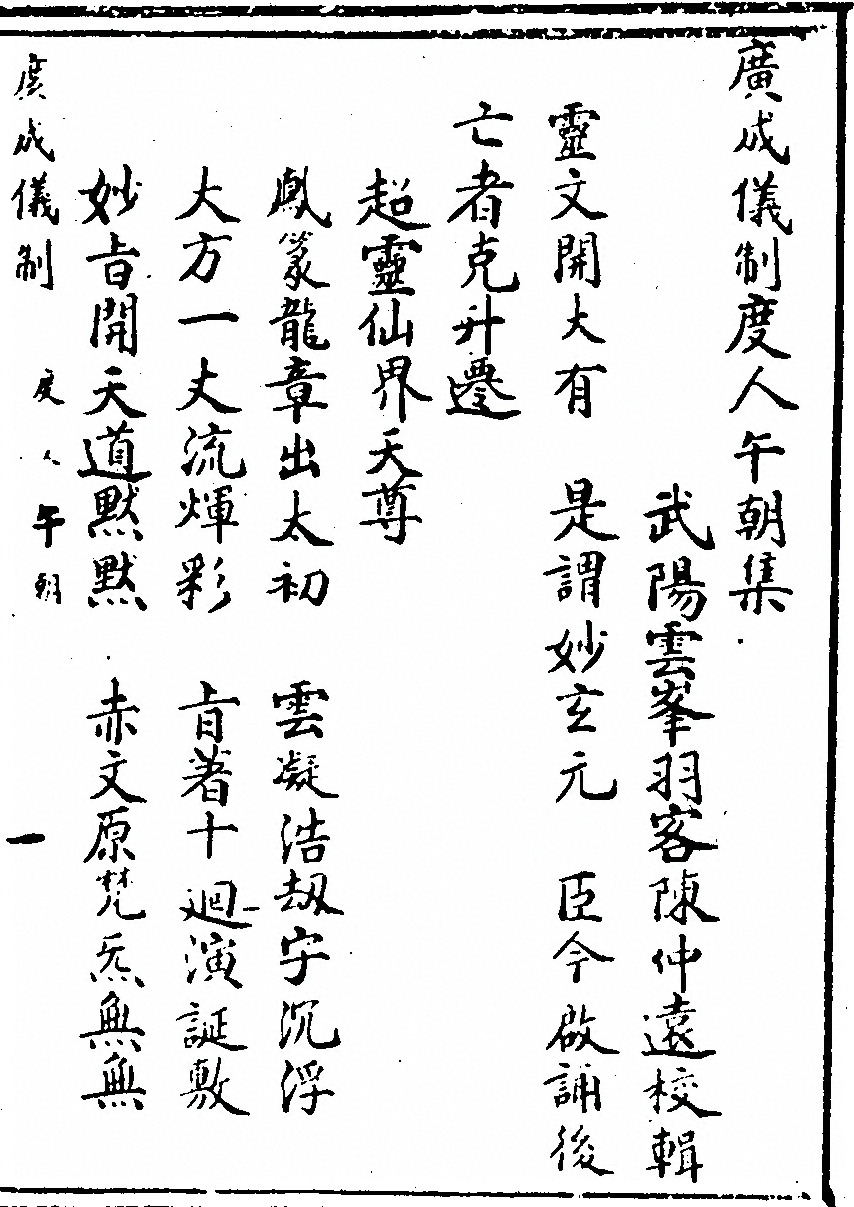 廣成儀制度人午朝集
武陽雲峯羽客陳仲遠校輯
靈文開大有　是謂妙玄元　臣今啟誦後
亡者克升遷
超靈仙界天尊
鳳篆龍章出太初　雲凝浩劫字沉浮
大方一丈流煇彩　旨著十迴演誕敷
妙旨開天道默默　赤文原梵炁無無
廣成儀制　度人午朝　一